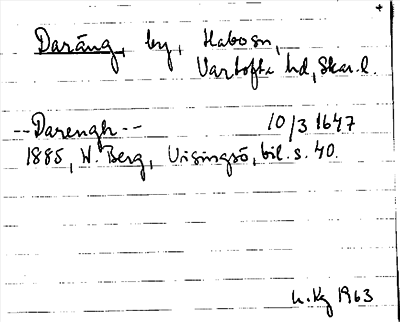 +
Daräng, by, Habo sn,
Vartofta hd, Skar. l.
-- Darengh -- 10/3 1647
1885, W. Berg, Visingsö, bil. s. 40.
1963